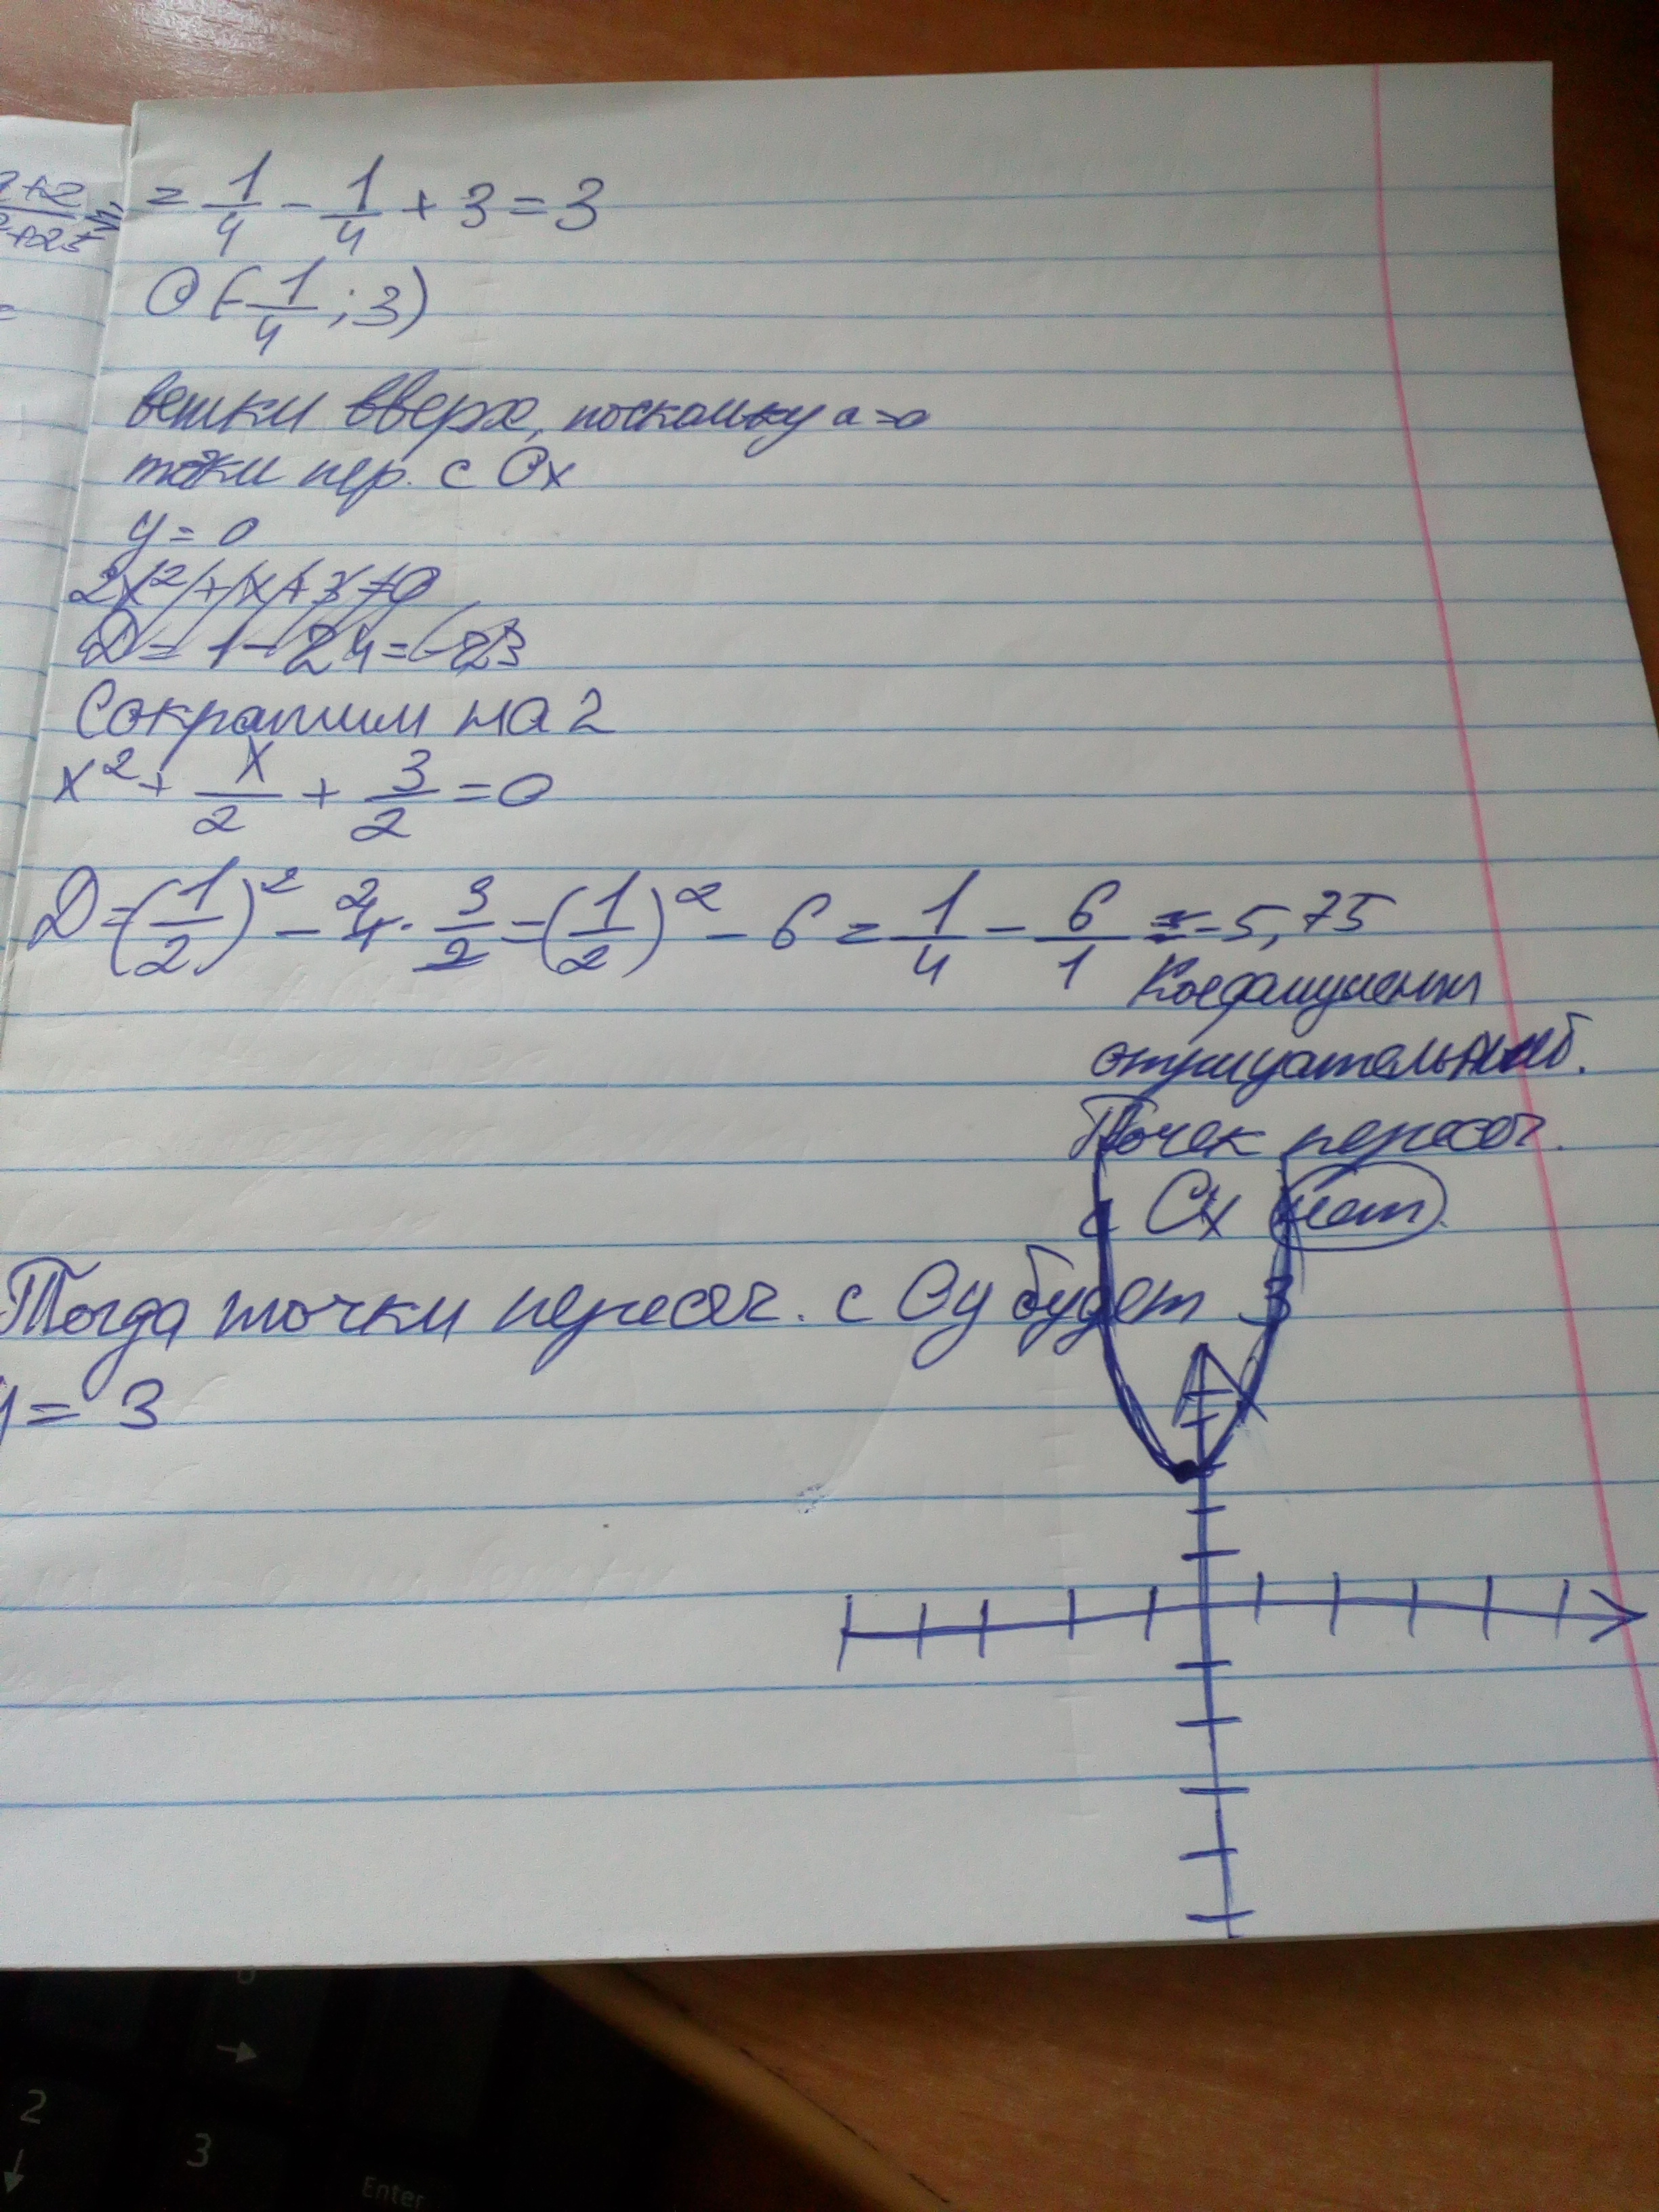 = 1/4 - 1/4 + 3 = 3
O(-1/4; 3)
ветки вверх, поскольку a=0
точки пер. с Ox
y = 0
2x² + x + 3 = 0
D = 1 - 24 = -23
Сократим на 2
x² + x/2 + 3/2 = 0
D = (1/2)² - 4 · 3/2 = (1/2)² - 6 = 1/4 - 6/1 = -5,75
отрицательный.
Точек пересеч.
с Ox нет.
Тогда точки пересеч. с Oy будет 3
y = 3
2
3
Enter